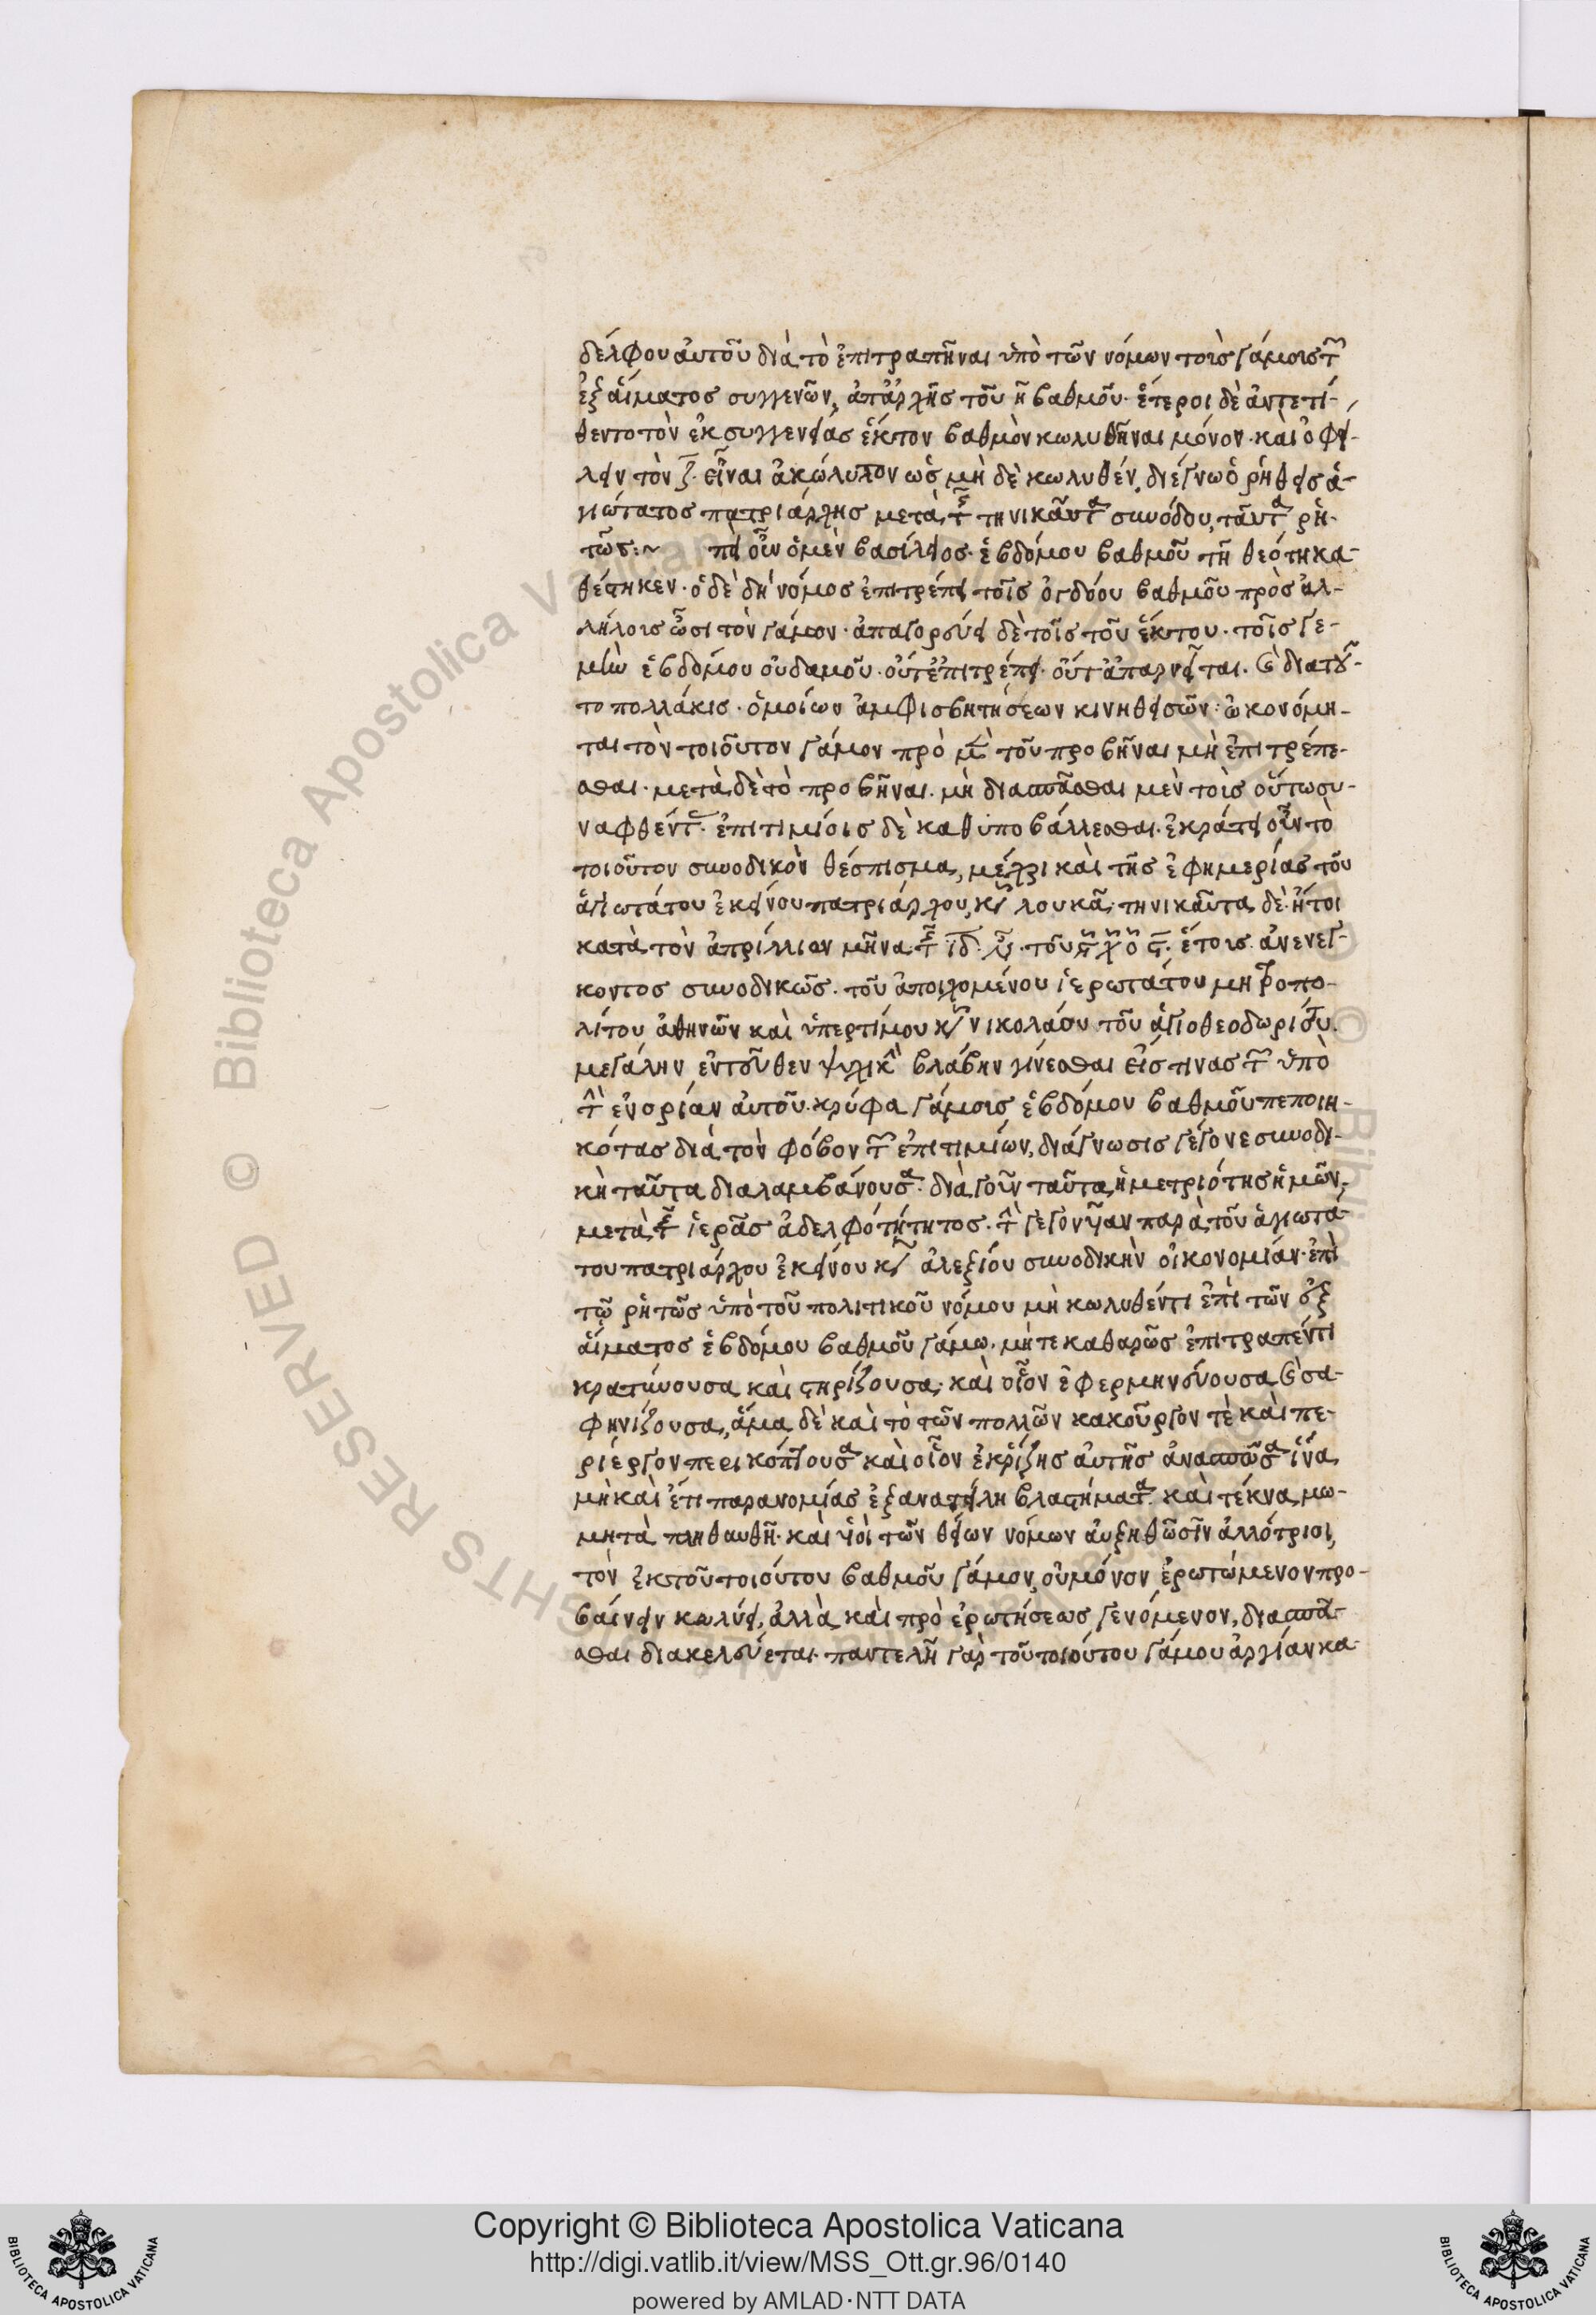 δέλφου αὐτοῦ διὰ τὸ ἐπιτραπῆναι ὑπὸ τῶν νόμων τοὶς γάμοις τῶν
ἐξ αἵματος συγγενῶν, ἀπ ἀρχῆς τοῦ η βαθμοῦ· ἕτεροι δὲ ἀντετί-
θεντο τὸν ἐκ συγγενείας ἕκτον βαθμὸν κωλυθῆναι μόνον· καὶ ὀφεί-
λειν τὸν ζ· εἶναι ἀκώλυτον ὡς μὴ δὲ κωλυθέν, διέγνω ὁ ῥηθεὶς ἁ-
γιώτατος πατριάρχης μετὰ τῆς τηνικαῦτα συνόδου, ταῦτα ῥη-
τῶς:~ πεὶ οὖν ὁ μὲν βασίλειος· ἑβδόμου βαθμοῦ τῆ θεότη κα-
θέστηκεν· ὁ δὲ δὴ νόμος ἐπιτρέπει τοῖς ὀγδόου βαθμοῦ πρὸς ἀλ-
λήλοις ὦσι τὸν γάμον· ἀπαγορεύει δὲ τοῖς τοῦ ἕκτου· τοῖς γε-
μὴν ἑβδόμου οὐδαμοῦ· οὔτ ἐπιτρέπει· οὔτ ἀπαρνεῖται. καὶ διατοῦ-
το πολλάκις· ὁμοίων ἀμφισβητήσεων κινηθεισῶν· ὠκονόμη-
ται τὸν τοιοῦτον γάμον πρὸ μὲν τοῦ προβῆναι μὴ ἐπιτρέπε-
σθαι· μετὰ δὲ τὸ προβῆναι· μὴ διασπᾶσθαι μὲν τοὶς οὕτω συ-
ναφθέντας· ἐπιτιμίοις δὲ καθυποβάλλεσθαι· ἐκράτει οὖν τὸ
τοιοῦτον συνοδικὸν θέσπισμα, μέχρι καὶ τῆς ἐφημερίας τοῦ
ἁγιωτάτου ἐκείνου πατριάρχου, κυροῦ λουκᾶ· τηνικαῦτα δὲ· ἤτοι
κατὰ τὸν ἀπρίλλιον μῆνα τῆς ιδ· ἰνδ· τοῦ ϛχος· ἔτους ἀνενεγ-
κοντος συνοδικῶς· τοῦ ἀποιχομένου ἱερωτάτου μητροπο-
λίτου ἀθηνῶν καὶ ὑπερτίμου κυροῦ νικολάου τοῦ ἁγιοθεοδωρίτου·
μεγάλην ἐντεῦθεν ψυχικὴν βλάβην γίνεσθαι εἴς τινας τῶν ὑπὸ
τὴν ἐνορίαν αὐτοῦ· κρύφα γάμοις ἑβδόμου βαθμοῦ πεποιη-
κότας διὰ τὸν φόβον τῶν ἐπιτιμίων, διάγνωσις γέγονε συνοδι-
κὴ ταῦτα διαλαμβάνουσα· διὰ γοῦν ταῦτα, ἡ μετριότης ἡμῶν,
μετὰ τῆς ἱερᾶς ἀδελφότήτητος· τὴν γεγονυῖαν παρὰ τοῦ ἁγιωτά-
του πατριάρχου ἐκείνου κυροῦ ἀλεξίου συνοδικὴν οἰκονομίαν· ἐπὶ
τῷ ῥητῶς ὑπὸ τοῦ πολιτικοῦ νόμου μὴ κωλυθέντι ἐπὶ τῶν ἐξ
αἵματος ἑβδόμου βαθμοῦ γάμω· μήτε καθαρῶς ἐπιτραπέντι
κρατύνουσα καὶ στηρίζουσα· καὶ οἷον ἐφερμηνεύουσα, καὶ σα-
φηνίζουσα, ἅμα δὲ καὶ τὸ τῶν πολλῶν κακοῦργον τὲ καὶ πε-
ρίεργον περικόπτουσα καὶ οἷον ἐκρίζης αὐτῆς ἀνασπῶσα ἵνα
μὴ καὶ ἔτι παρανομίας ἐξανατείλη βλαστήματα· καὶ τέκνα μω-
μητὰ πληθυνθῆ· καὶ υἱοὶ τῶν θείων νόμων αὐξηθῶσιν ἀλλότριοι,
τὸν ἐκ τοῦ τοιούτου βαθμοῦ γάμον, οὐ μόνον ἐρωτώμενον προ-
βαίνειν κωλύει, ἀλλὰ καὶ πρὸ ἐρωτήσεως γενόμενον, διασπᾶ-
σθαι διακελεύεται· παντελῆ γὰρ τοῦ τοιούτου γάμου ἀργίαν κα-
Copyright © Biblioteca Apostolica Vaticana
http://digi.vatlib.it/view/MSS_Ott.gr.96/0140
powered by AMLAD·NTT DATA